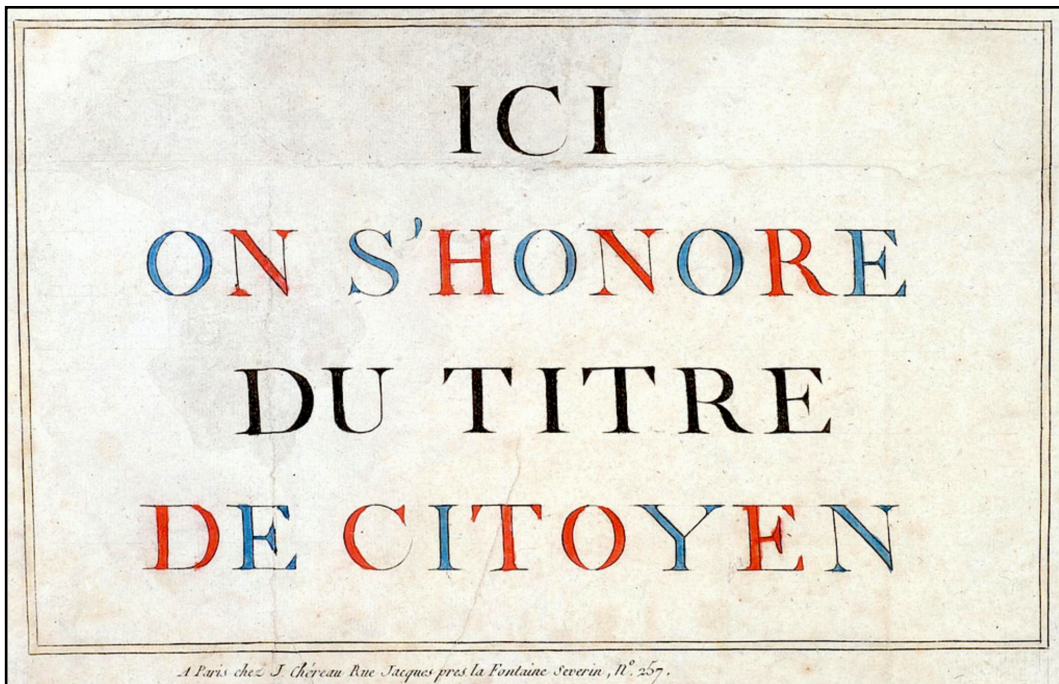 ICI
ON S'HONORE
DU TITRE
DE CITOYEN
A Paris chez J. Chéreau Rue Jacques pres la Fontaine Severin, N.º 257.